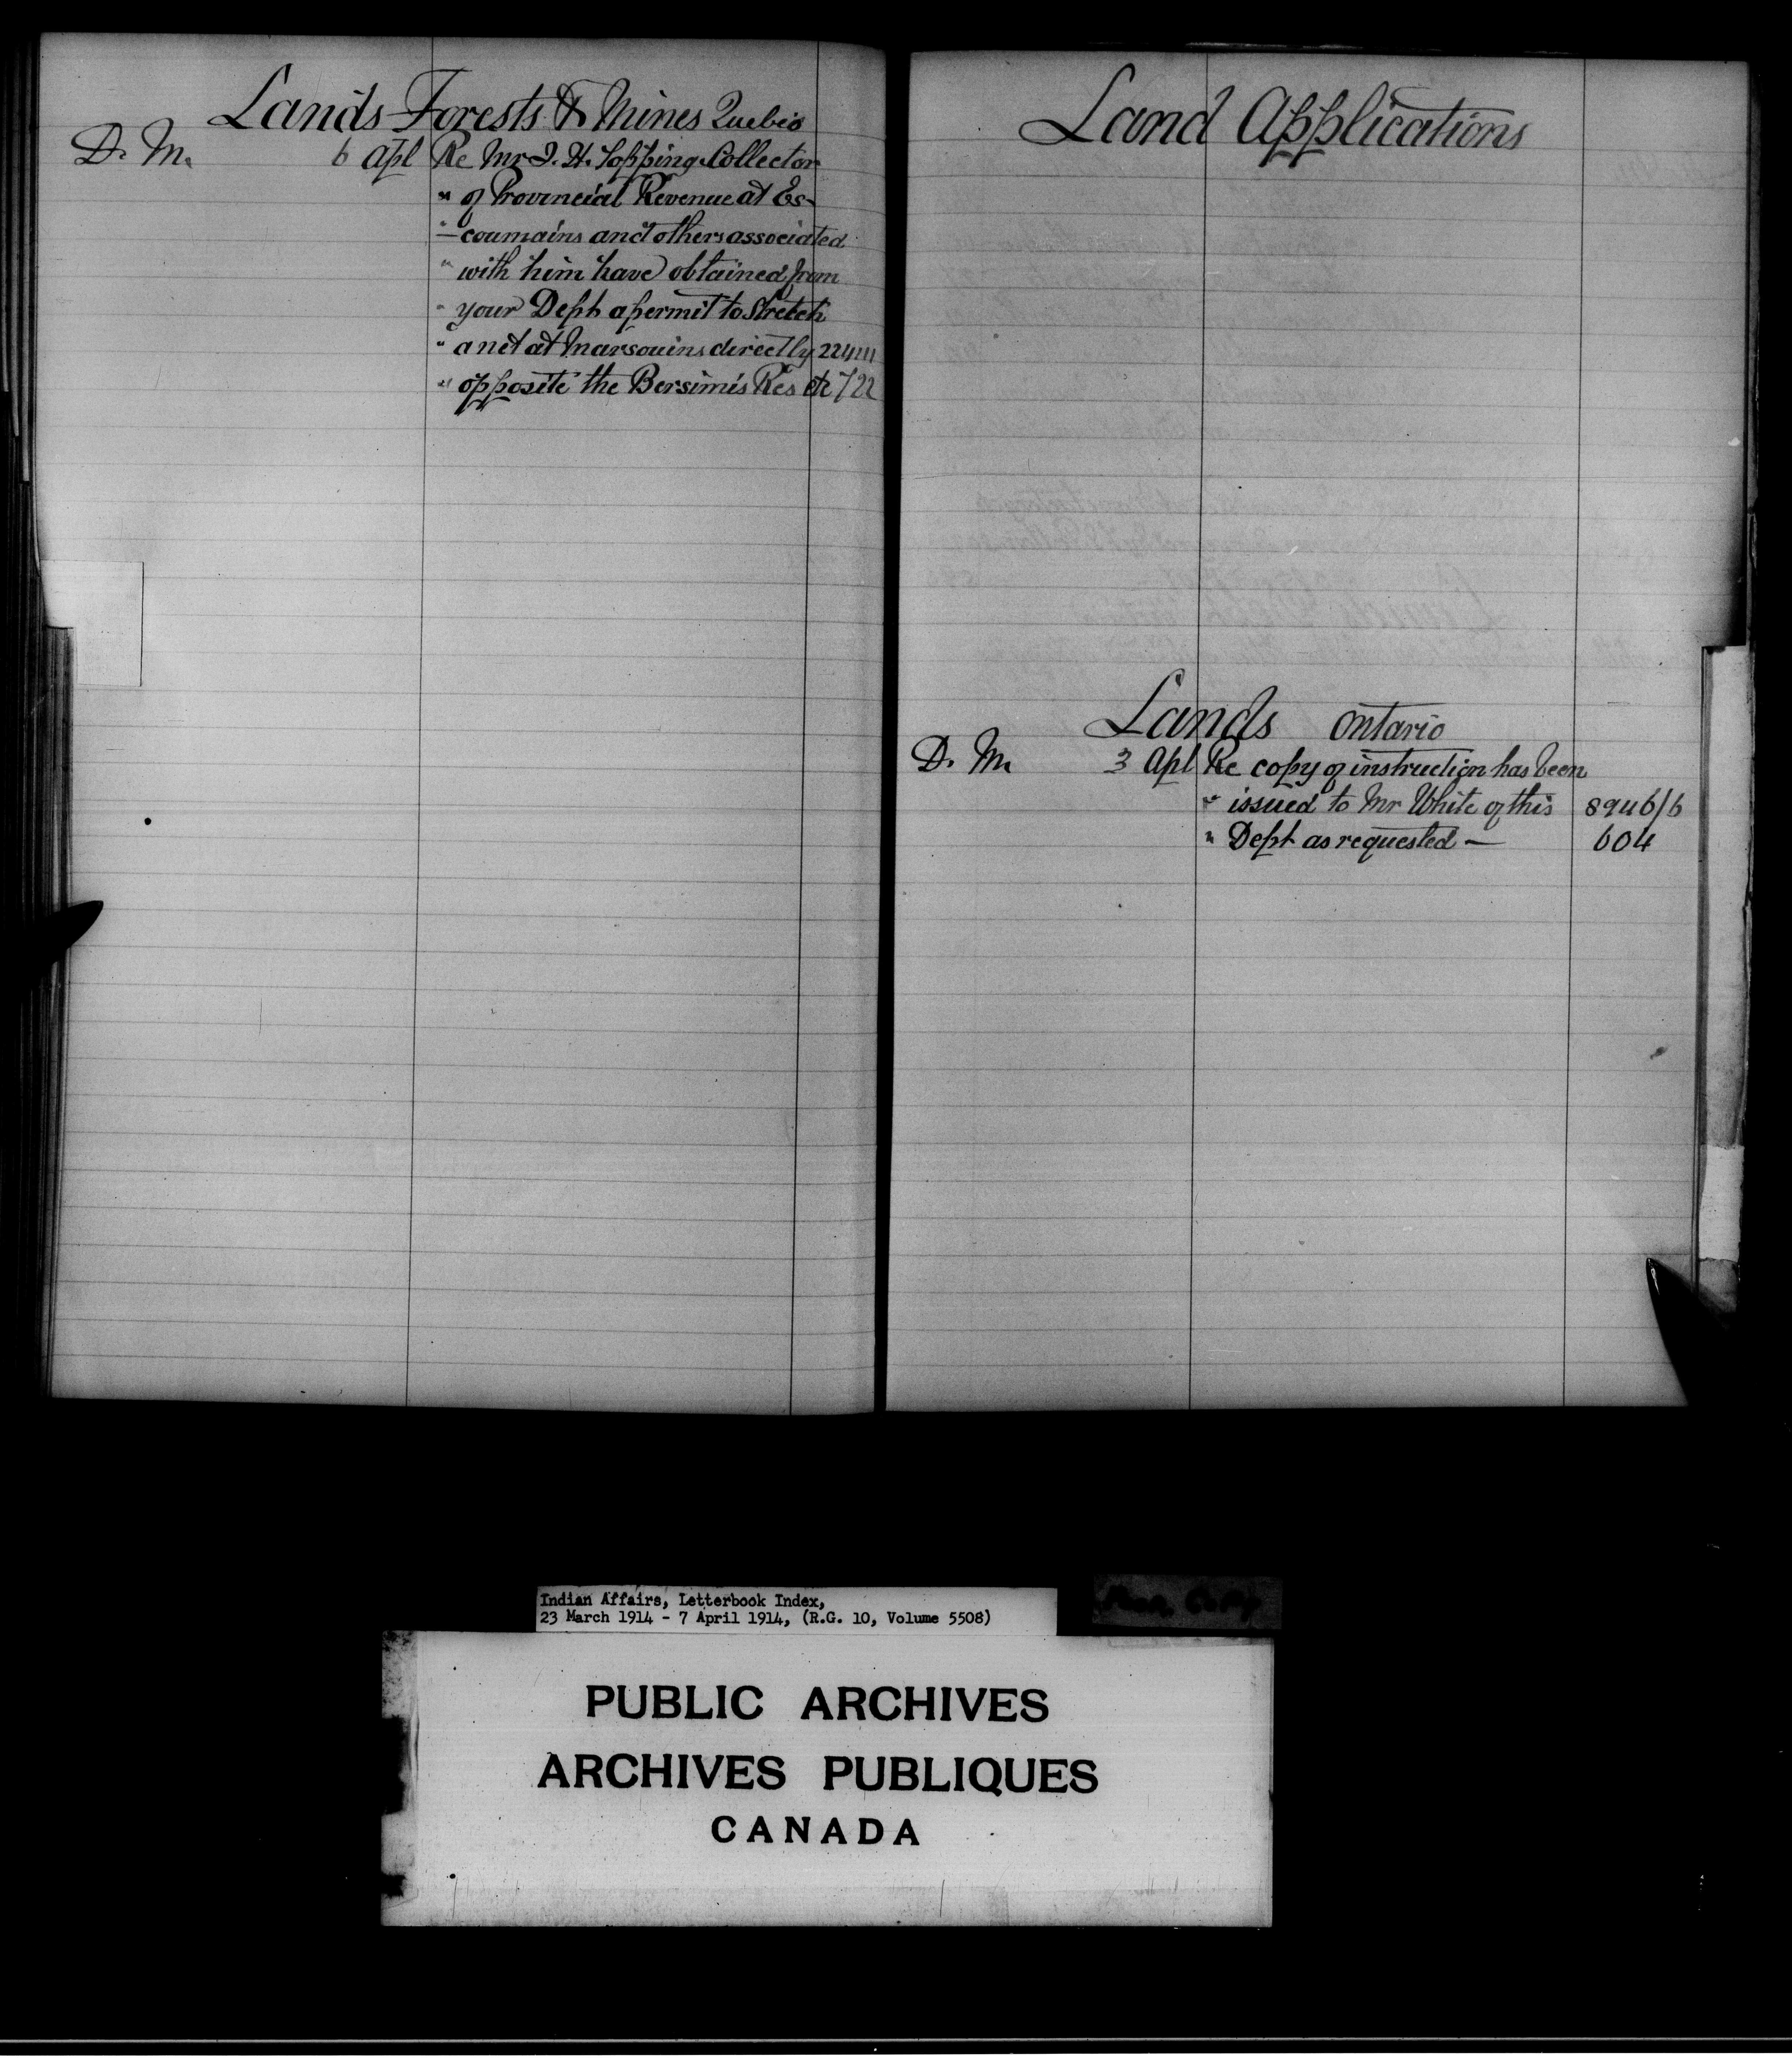 Lands Forests & Mines Quebec
D. M. 6 Apl Re Mr J. H. Topping Collector
" of Provincial Revenue at Es-
" coumains and others associated
" with him have obtained from
" your Dept a permit to Stretch
" a net at Marsouins directly 22441
" opposite the Bersimis Res etc 722
Land Applications
Lands Ontario
D. M. 3 Apl Re copy of instruction has been
" issued to Mr White of this 8946/6
" Dept as requested — 604
Indian Affairs, Letterbook Index,
23 March 1914 - 7 April 1914, (R.G. 10, Volume 5508)
PUBLIC ARCHIVES
ARCHIVES PUBLIQUES
CANADA